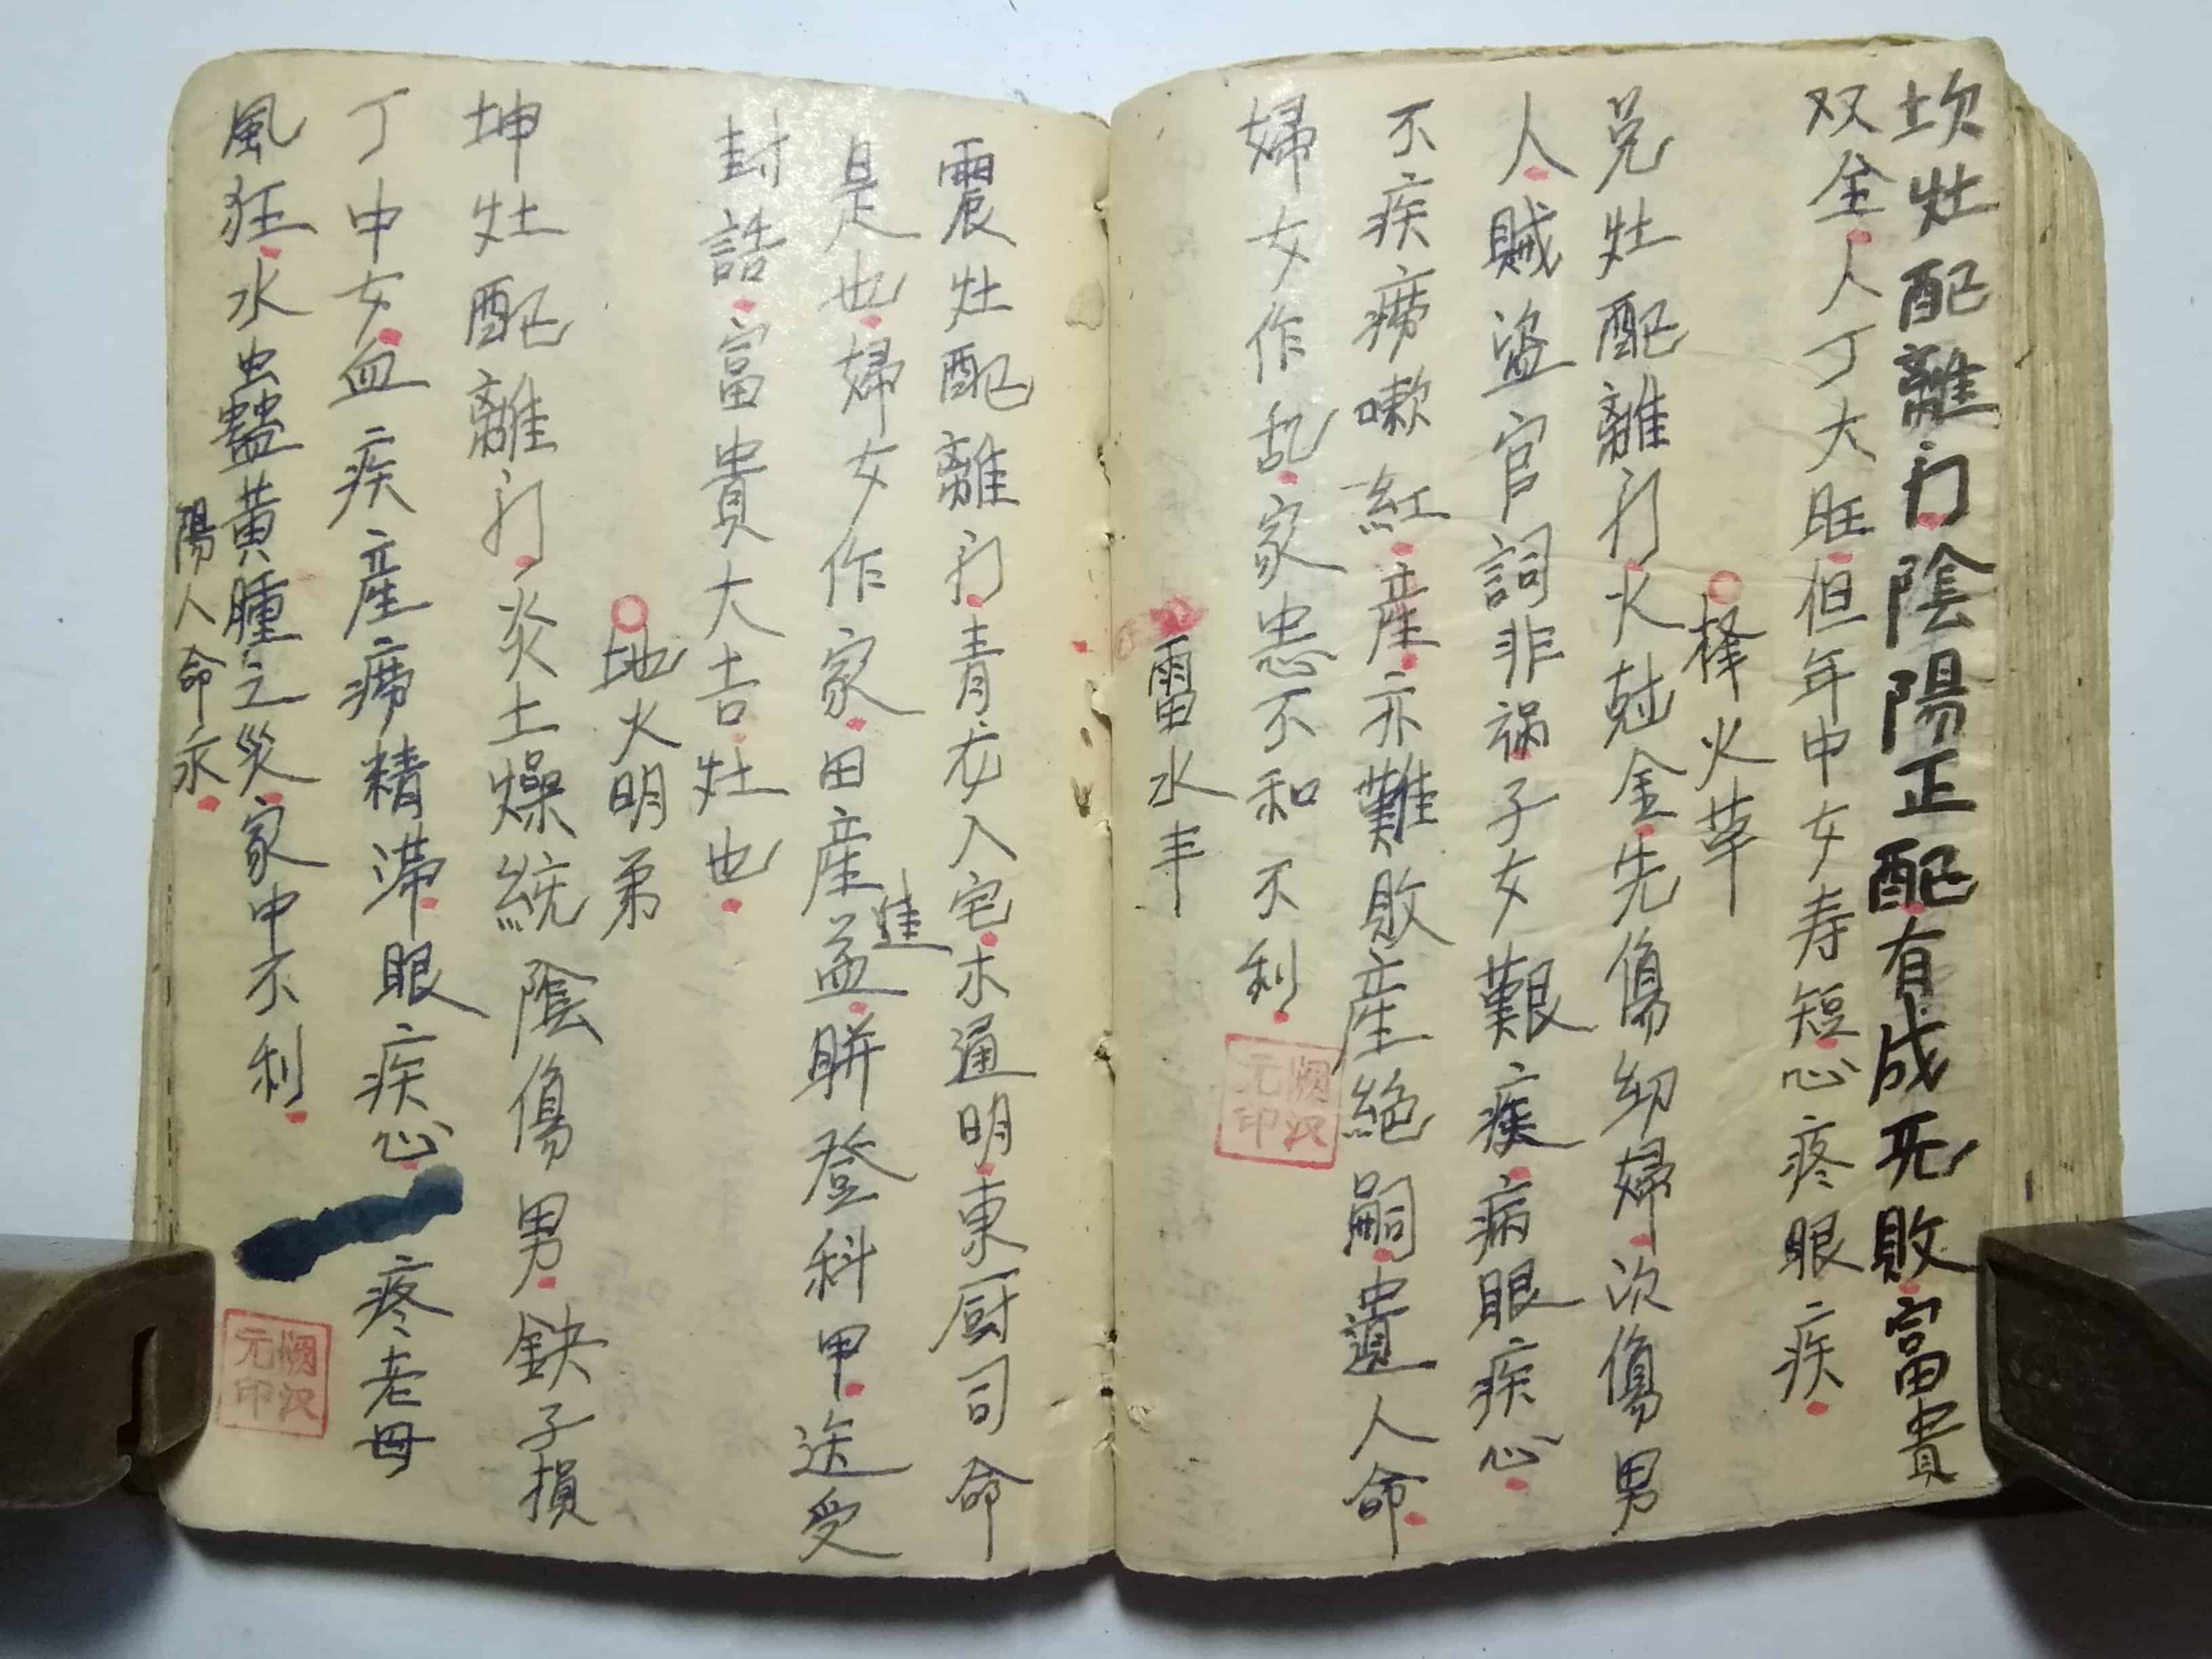 坎灶配離门陰陽正配有成无敗富貴
双全人人丁大旺但年中女寿短心疼眼疾
择火革
兑灶配離门火尅金先傷幼婦次傷男
人賊盗官詞非祸子女艱痰病眼疾心
不疾痨嗽紅產亦難敗產絶嗣遺人命
婦女作乱家忠不和不利
雷水丰
震灶配離门青衣入宅木通明東厨司命
是也婦女作家田產益進聨登科甲送受
封誥富貴大吉灶也
地火明弟
坤灶配離门炎土燥統陰傷男鉄子損
丁中女血疾產痨精滞眼疾心疼老母
風狂水蟲蠱黃腫之災家中不利
陽人命永
順汉
元印
順汉
元印